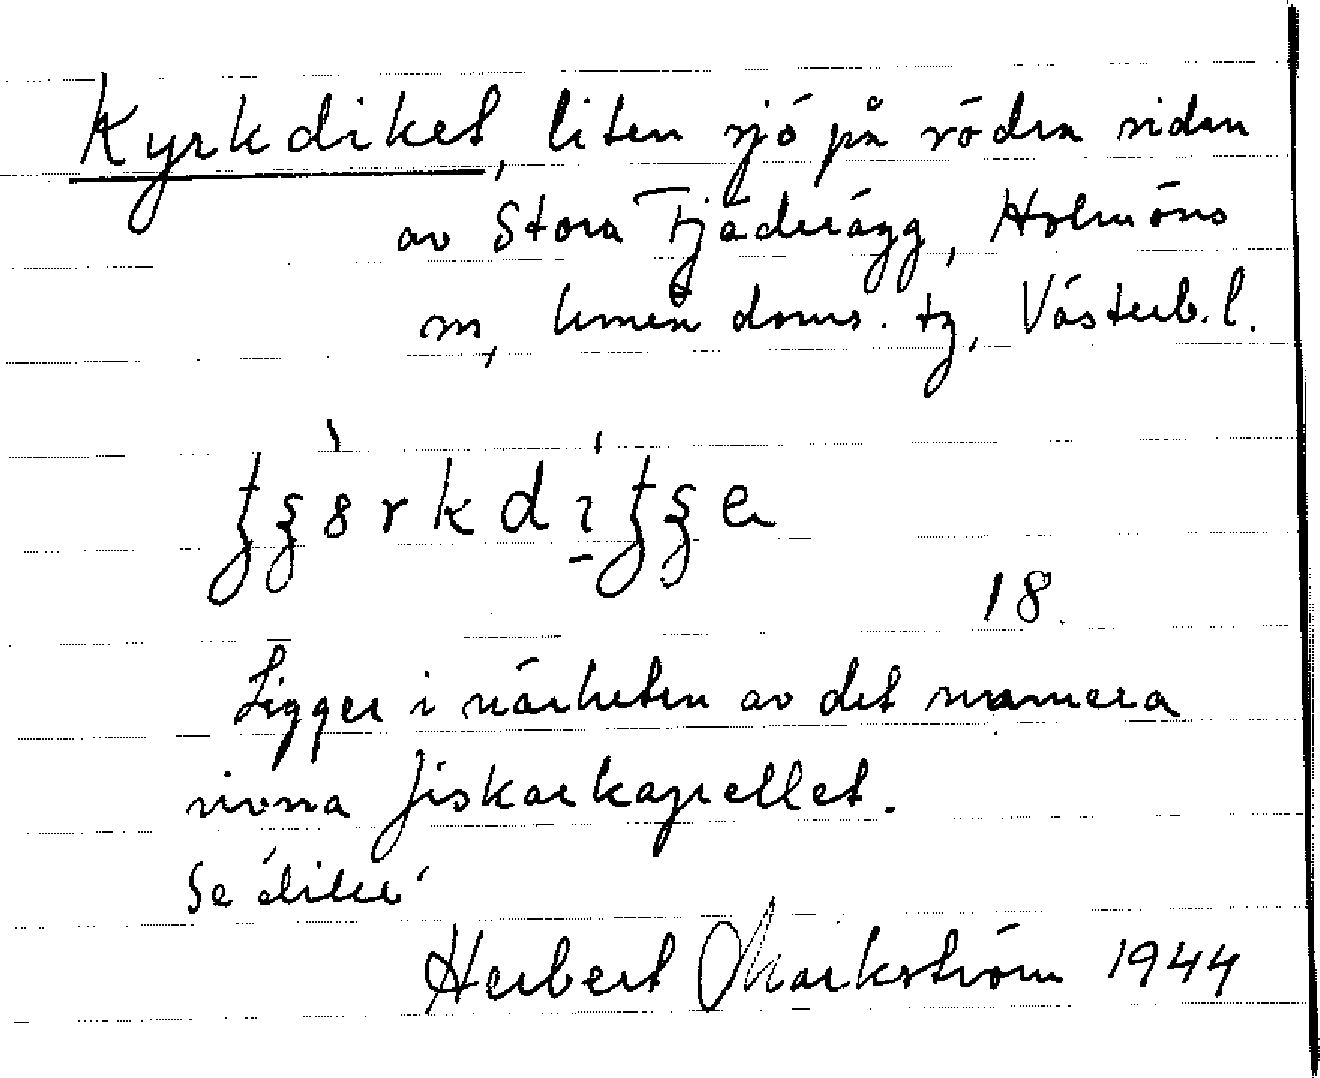 Kyrkdiket, liten sjö på södra sidan
av Stora Fjäderägg, Holmöns
sn, Umeå doms. tg, Västerb. l.
18.
Ligger i närheten av det numera
rivna fiskarkapellet.
Se 'dike'
Herbert Markström 1944